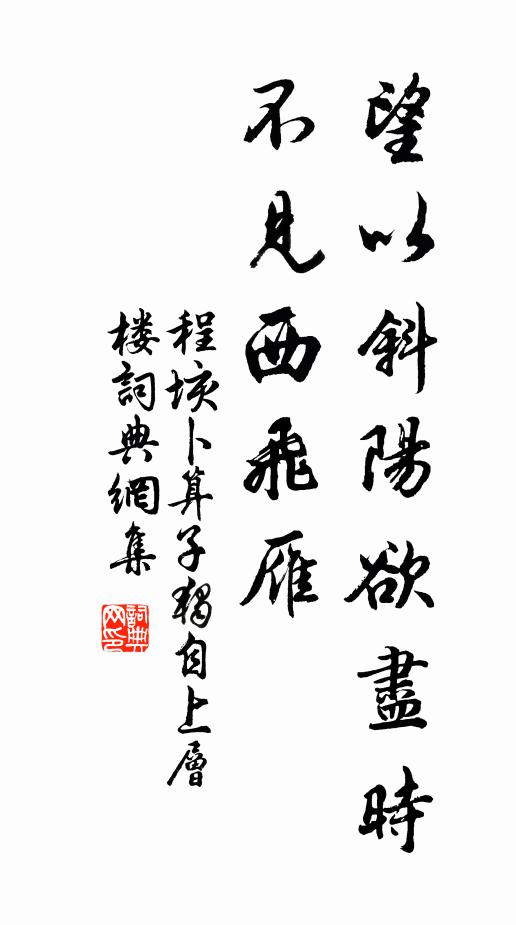 望以斜陽欲盡時
不見西飛雁
程垓卜算子獨自上層
楼詞典網集
詞典
网印